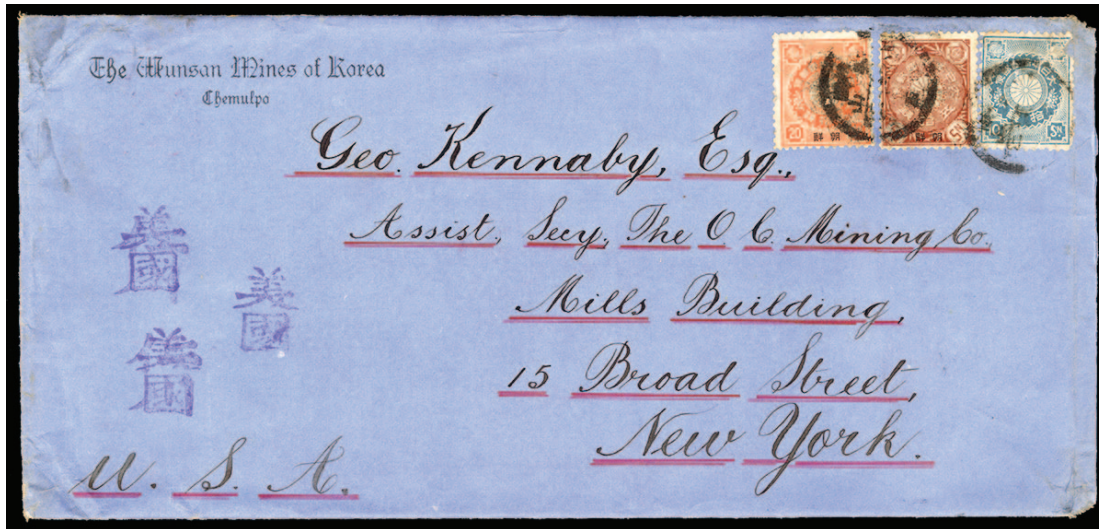 The Wunsan Mines of Korea
Chemulpo
20
朝鮮
朝鮮
Geo. Kennaby, Esq.,
Assist, Secy, The O C. Mining Co.,
Mills Building,
15 Broad Street,
New York.
美國
美國
美國
U. S. A.